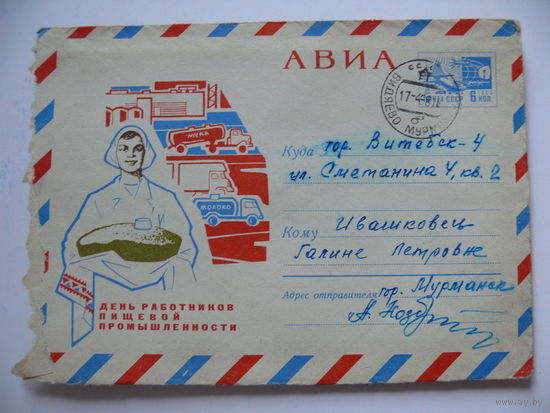 АВИА
ПОЧТА СССР
6 КОП.
СССР
17-4
МУКА
МОЛОКО
Куда гор. Витебск-4
ул. Сметанина 4, кв. 2
Кому Ивашковец
Галине Петровне
Адрес отправителя гор. Мурманск
ДЕНЬ РАБОТНИКОВ
ПИЩЕВОЙ
ПРОМЫШЛЕННОСТИ
www.ay.by